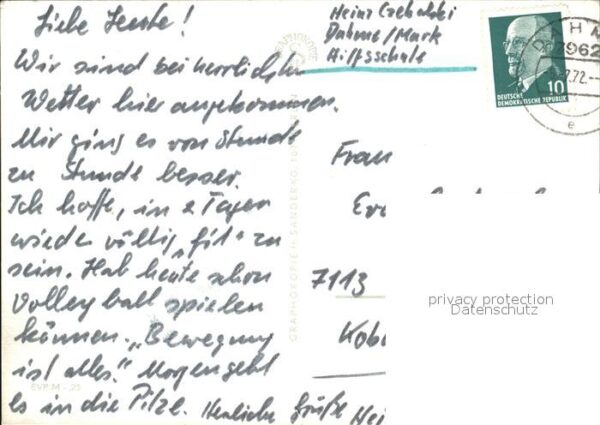 Liebe Leute!
Wir sind bei herrlichstem
Wetter hier angekommen.
Mir ging es von Stunde
zu Stunde besser.
Ich hoffe, in 2 Tagen
wieder völlig „fit“ zu
sein. Hab heute schon
Volleyball spielen
können. „Bewegung
ist alles.“ Morgen geht
es in die Pilze. Herzliche Grüße Hei
EVP M -,25
Heinz
Dahme/Mark
Hilfsschule
DEUTSCHE
DEMOKRATISCHE REPUBLIK
10
DAHM
7962
7.72.
e
Frau
7113
privacy protection
Datenschutz